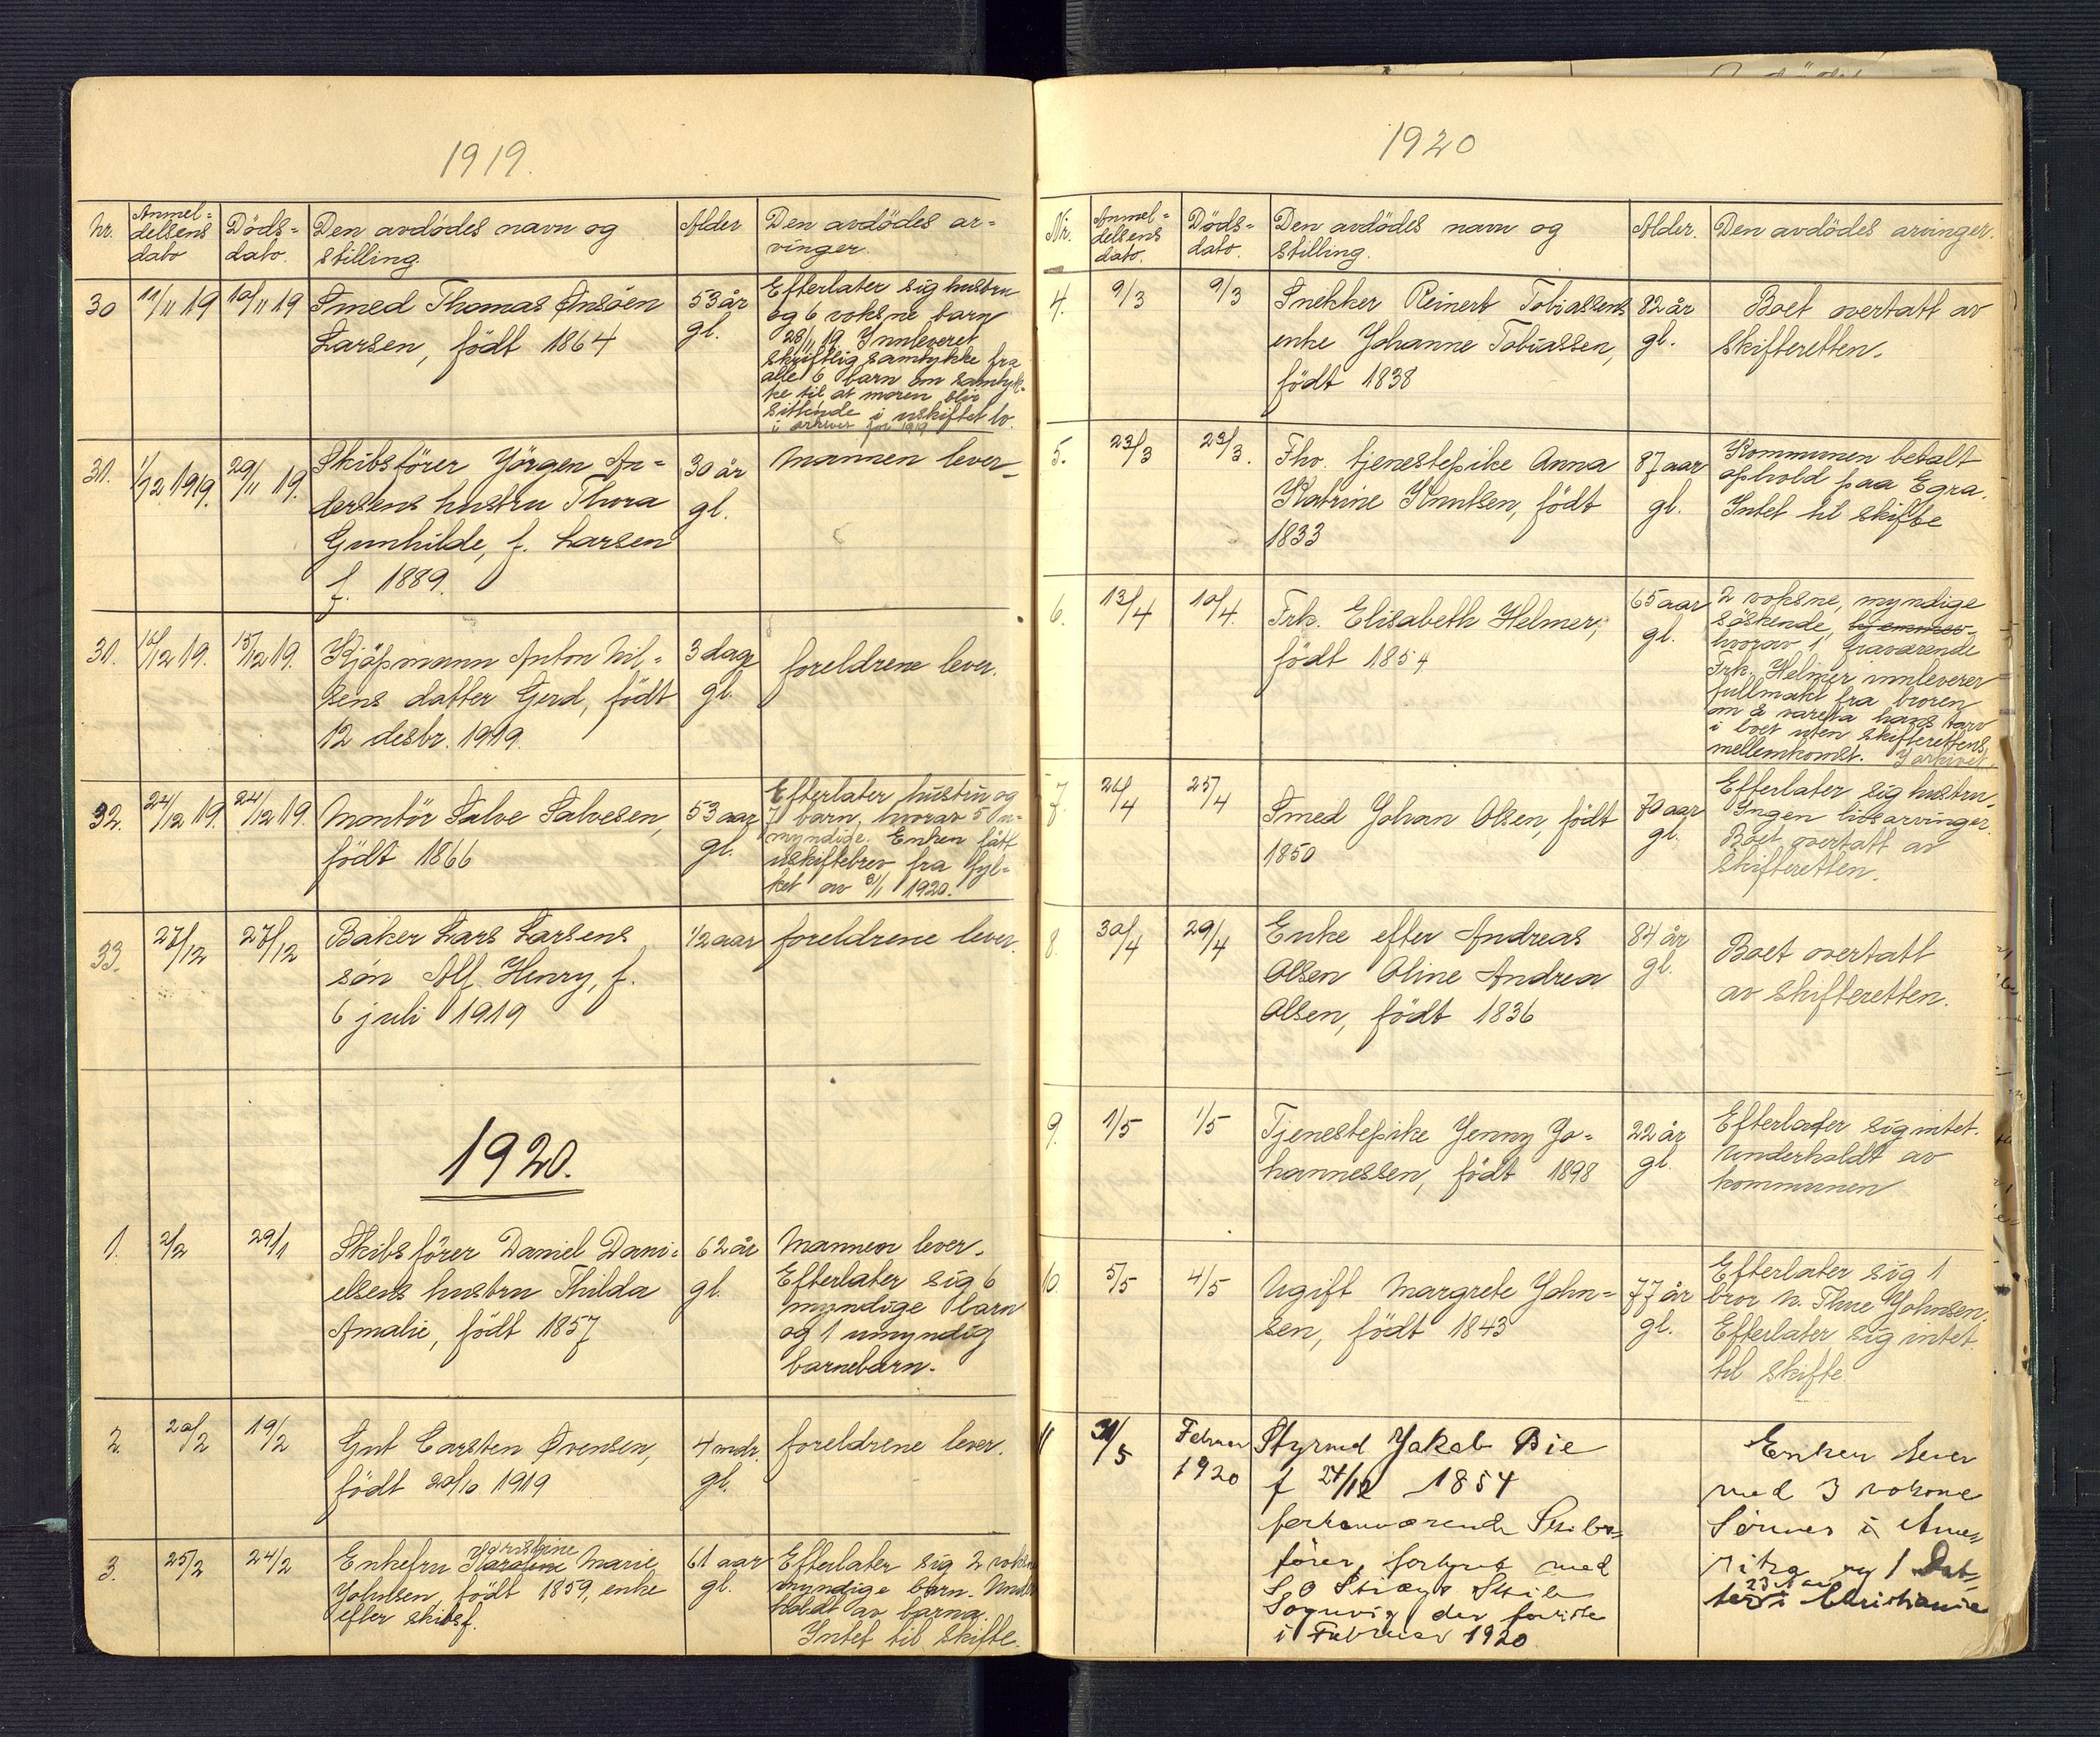 1919.
Nr.
Anmel-
delsens
dato
Döds-
dato.
Den avdödes navn og
stilling
Alder
Den avdödes ar-
vinger.
30
11/11 19
10/11 19
Smed Thomas Ansöen
Larsen, födt 1864
53 år
gl.
Efterlater sig hustru
og 6 voksne barn
28/11 19 Innleveret
skriftlig samtykke fra
alle 6 barn om samtyk-
ke til at moren blir
sittende i uskiftet bo.
i arkivet for 1919
31.
1/12 1919.
29/11 19.
Skibsförer Jörgen An-
dersens hustru Thora
Gunhilde, f. Larsen
f. 1889.
30 år
gl.
Mannen lever
31.
16/12 19.
15/12 19.
Kjöpmann Anton Nil-
sens datter Gerd, födt
12 desbr. 1919.
3 dage
gl.
foreldrene lever.
32.
24/12 19.
24/12 19.
Montör Salve Salvesen,
födt 1866
53 aar
gl.
Efterlater hustru og
7 barn, hvorav 5 u-
myndige. Enken fått
uskiftebrev fra fyl-
ket av 8/1 1920.
33.
27/12
27/12
Baker Lars Larsens
sön Alf Henry, f.
6 juli 1919
1/2 aar
foreldrene lever.
1920.
1.
2/2
29/1
Skibsförer Daniel Dani-
elsens hustru Thilda
Amalie, födt 1857
62 år
gl.
Mannen lever.
Efterlater sig 6
myndige barn
og 1 umyndig
barnebarn.
2.
20/2
19/2
Gut Carsten Svensen,
födt 20/10 1919
4 mdr.
gl.
foreldrene lever.
3.
25/2
24/2
Kristine
Enkefru Karoline Marie
Johnsen, födt 1859, enke
efter skibsf.
61 aar
gl.
Efterlater sig 2 voksne
myndige barn. Under
holdt av barna.
Intet til skifte.
1920
Nr.
Anmel-
delsens
dato.
Döds-
dato.
Den avdödes navn og
stilling.
Alder.
Den avdödes arvinger.
4.
9/3
9/3
Snekker Reinert Tobiassens
enke Johanne Tobiassen,
födt 1838
82 år
gl.
Boet overtatt av
skifteretten.
5.
23/3
23/3.
Fhv. tjenestepike Anna
Katrine Knutsen, födt
1833
87 aar
gl.
Kommunen betalt
ophold paa Egra.
Intet til skifte
6.
13/4
10/4.
Frk. Elisabeth Helmer,
födt 1854
65 aar
gl.
2 voksne, myndige
söskende, hjemmev-
hvorav 1 fraværende
Frk. Helmer innleverer
fullmakt fra broren
om å vareta hans tarv
i boet uten skifterettens
mellemkomst. I arkivet.
7.
26/4
25/4
Smed Johan Olsen, födt
1850
70 aar
gl.
Efterlater sig hustru.
Ingen livsarvinger.
Boet overtatt av
skifteretten.
8
30/4
29/4
Enke efter Andreas
Olsen Oline Andrea
Olsen, födt 1836
84 år
gl.
Boet overtatt
av skifteretten.
9.
1/5
1/5
Tjenestepike Jenny Jo-
hannessen, födt 1898
22 år
gl.
Efterlater sig intet.
Underholdt av
kommunen
10
5/5
4/5
Ugift Margrete John-
sen, födt 1843
77 år
gl.
Efterlater sig 1
bror N. Thue Johnsen.
Efterlater sig intet
til skifte.
11
31/5
Februar
1920
Styrmd Jakob Bie
f 24/12 1854
forhenværende Skibs-
förer, forlist med
Soguvig der forliste
i Februar 1920
Enken lever
med 3 voksne
Sönner i Ame-
rika og 1 Dat-
ter i Christiania